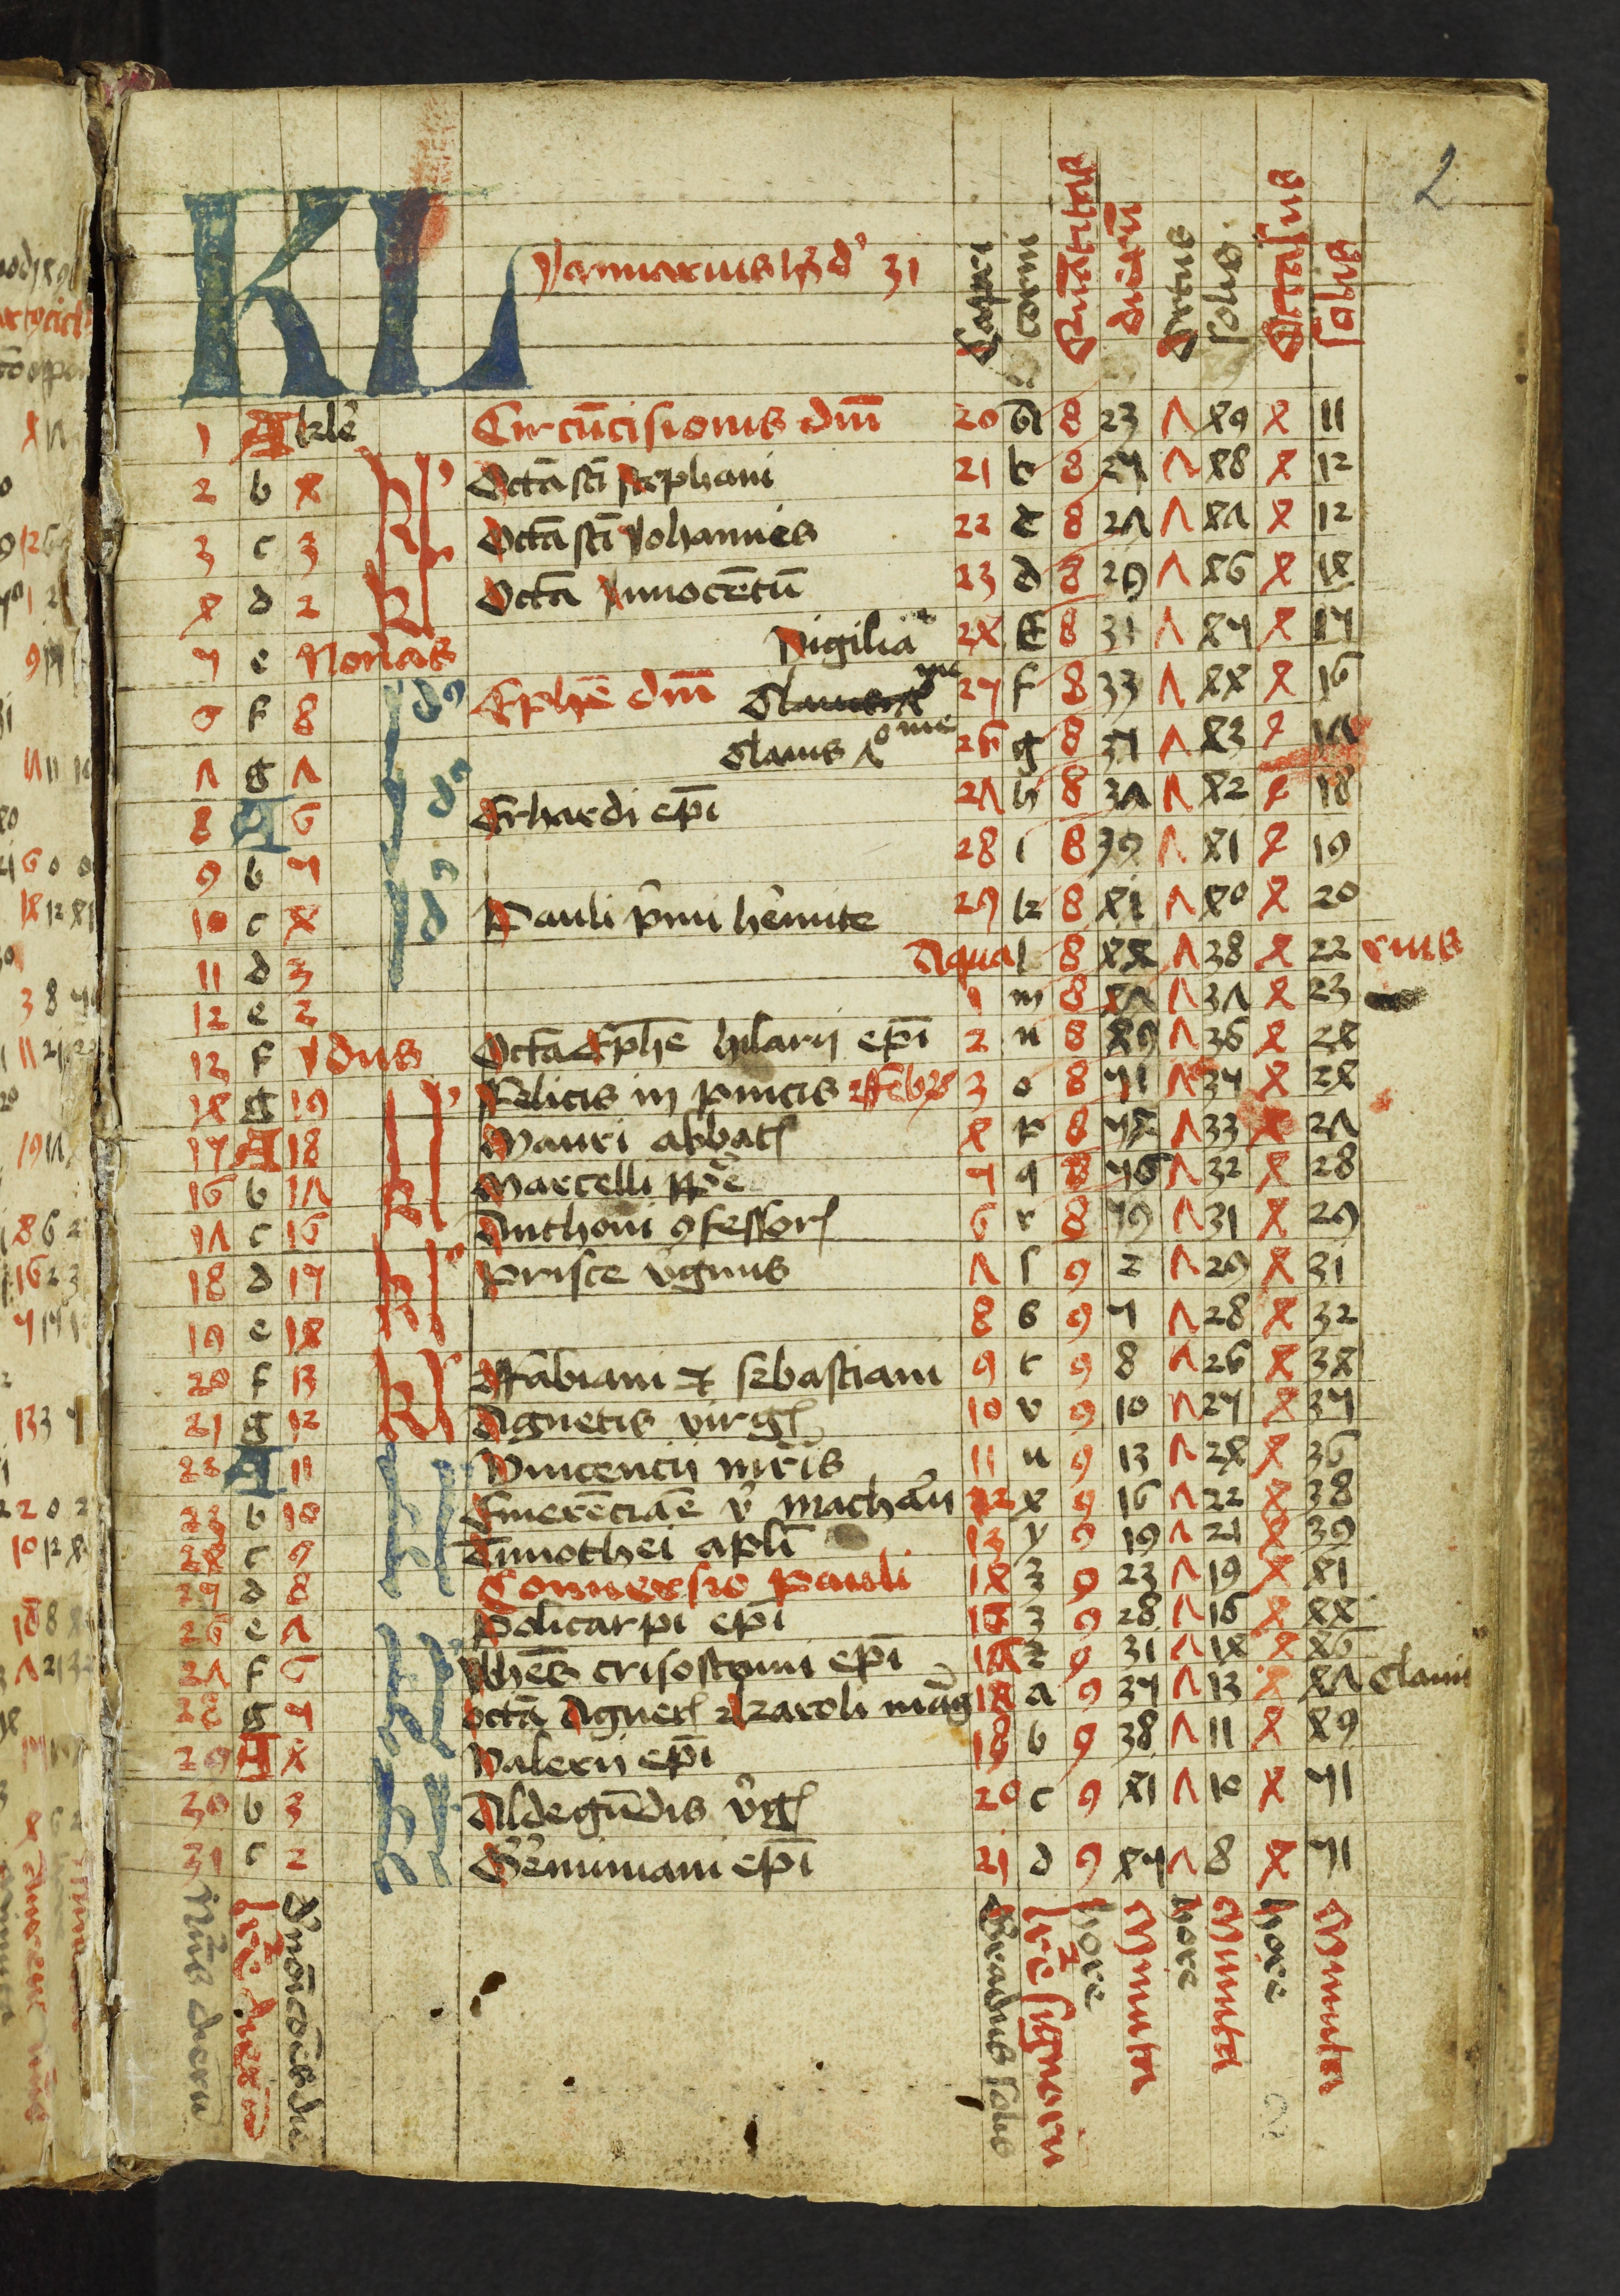 2
KL Januarius hȝ d' 31
Capricorni Quātitas dierū Ortus solis Occasus solis
1 A kle Circūcisionis dni 20 a 8 23 7 49 4 11
2 b 4 Octā sti stephani 21 b 8 25 7 48 4 12
3 c 3 Octā sti Johannes 22 c 8 27 7 47 4 12
4 d 2 Octā Innocētū 23 d 8 29 7 46 4 14
5 e Nonas Vigilia 24 e 8 31 7 45 4 15
6 f 8 Ephē dni 25 f 8 33 7 44 4 16
7 g 7 Clauis 26 g 8 35 7 43 4 17
8 A 6 Erhardi epi 27 h 8 37 7 42 4 18
9 b 5 28 i 8 39 7 41 4 19
10 c 4 Pauli pmi hemite 29 k 8 41 7 40 4 20
11 d 3 Aqua l 8 44 7 38 4 22 rius
12 e 2 1 m 8 47 7 37 4 23
13 f Idus Octā Ephē hilarij epi 2 n 8 49 7 36 4 24
14 g 19 Felicis in pincis 3 o 8 51 7 35 4 24
15 A 18 Mauri abbat 4 p 8 54 7 33 4 27
16 b 17 Marcelli ppe 5 q 8 56 7 32 4 28
17 c 16 Anthoni 9fessor 6 r 8 59 7 31 4 29
18 d 15 Prisce vginis 7 s 9 2 7 29 4 31
19 e 14 8 s 9 5 7 28 4 32
20 f 13 Fabiani et sebastiani 9 t 9 8 7 26 4 34
21 g 12 Agnetis virg 10 v 9 10 7 25 4 35
22 A 11 Vincencij mris 11 u 9 13 7 24 4 36
23 b 10 Emerēciāe v machari 12 x 9 16 7 22 4 38
24 c 9 Timothei apli 13 y 9 19 7 21 4 39
25 d 8 Conuersio Pauli 14 z 9 23 7 19 4 41
26 e 7 Policarpi epi 9 28 7 16 4 44
27 f 6 Johēs crisostomi epi 9 31 7 14 4 46
28 g 5 octā Agnet karoli mag a 9 35 7 13 4 47 Clauis
29 A 4 Valerij epi 19 b 9 38 7 11 4 49
30 b 3 Aldegūdis vg 20 c 9 41 7 10 4 51
31 c 2 Geminiani epi 21 d 9 45 7 8 4 51
Gradus solis hore Minuta hore Minuta hore Minuta